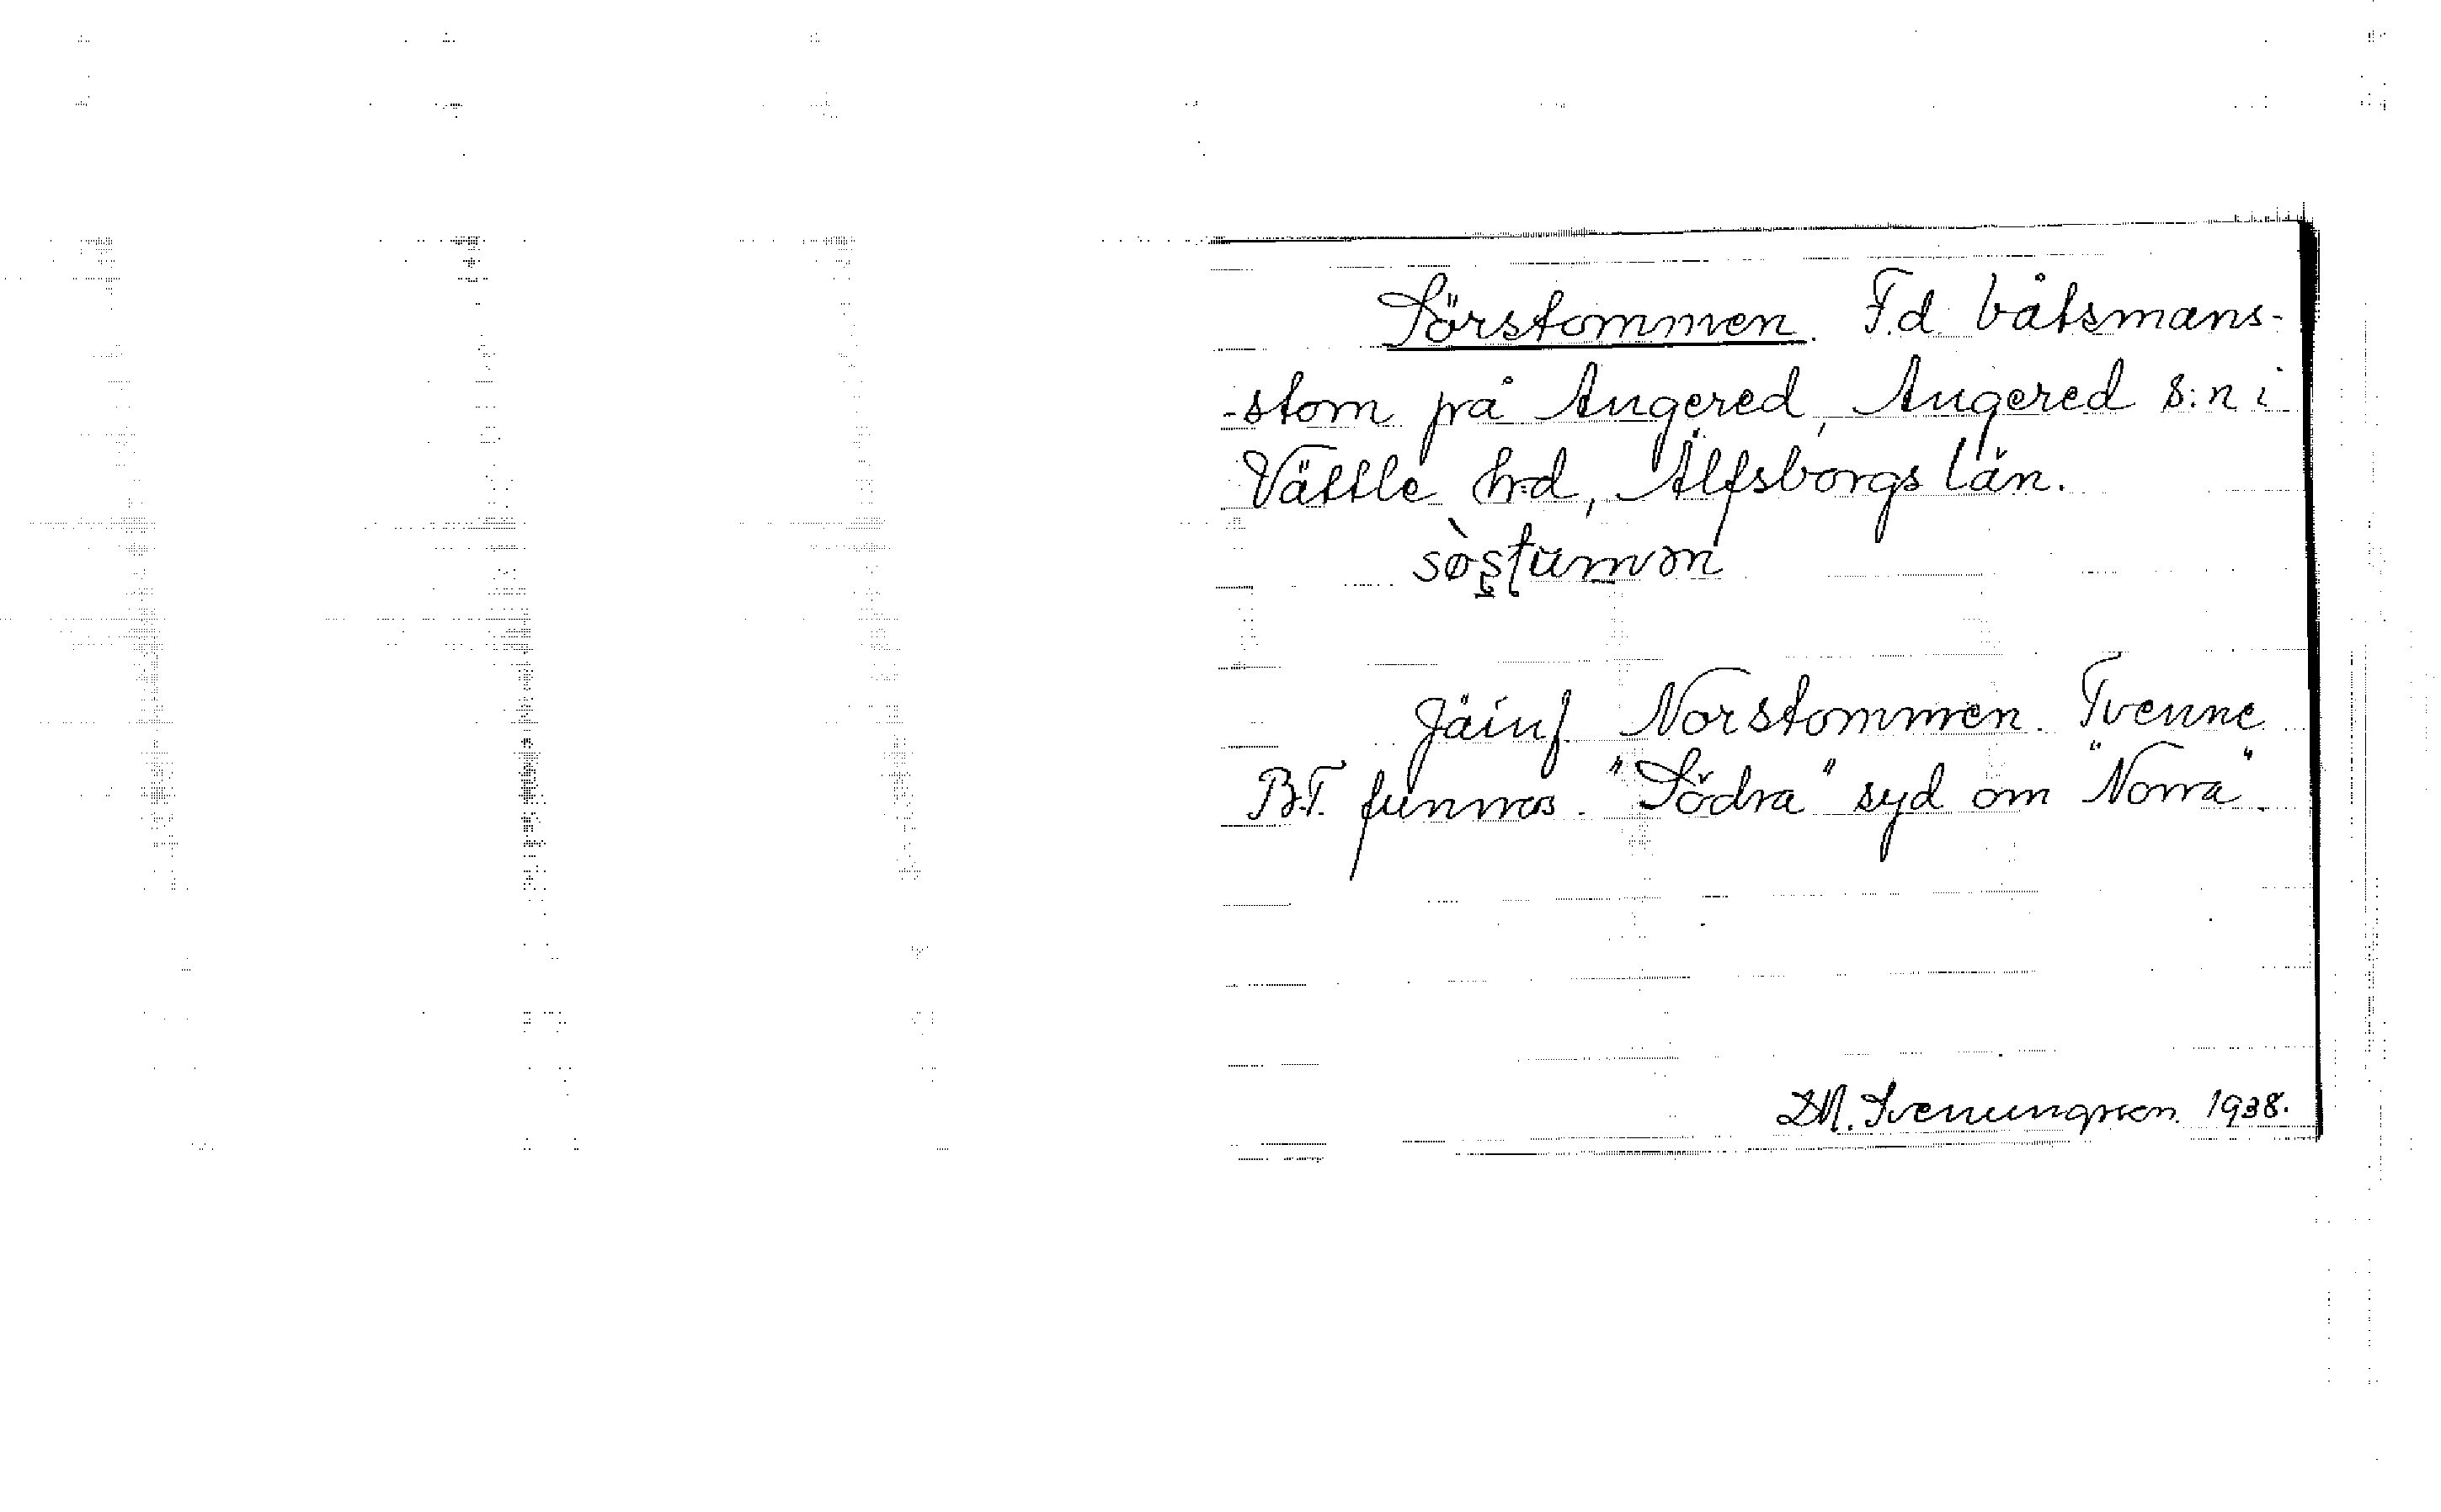 Sörstommen. F.d. båtsmans-
-stom på Angered, Angered s:n i
Vättle h-d, Älfsborgs län.
Jäinf. Norstommen. Tvenne
B.T. funnos. "Södra" syd om "Norra".
D.M. Svenungsson. 1938.